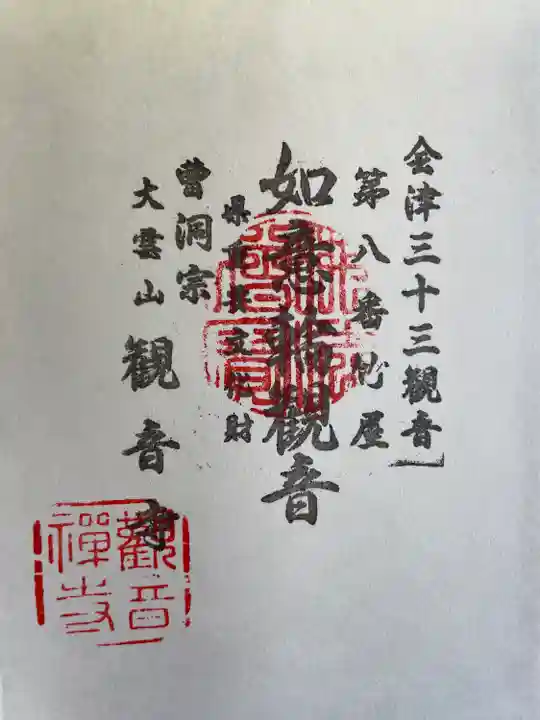 会津三十三観音
第八番竹屋
如意輪観音
県重要文化財
曹洞宗
大雲山 観音寺
觀音
禅寺